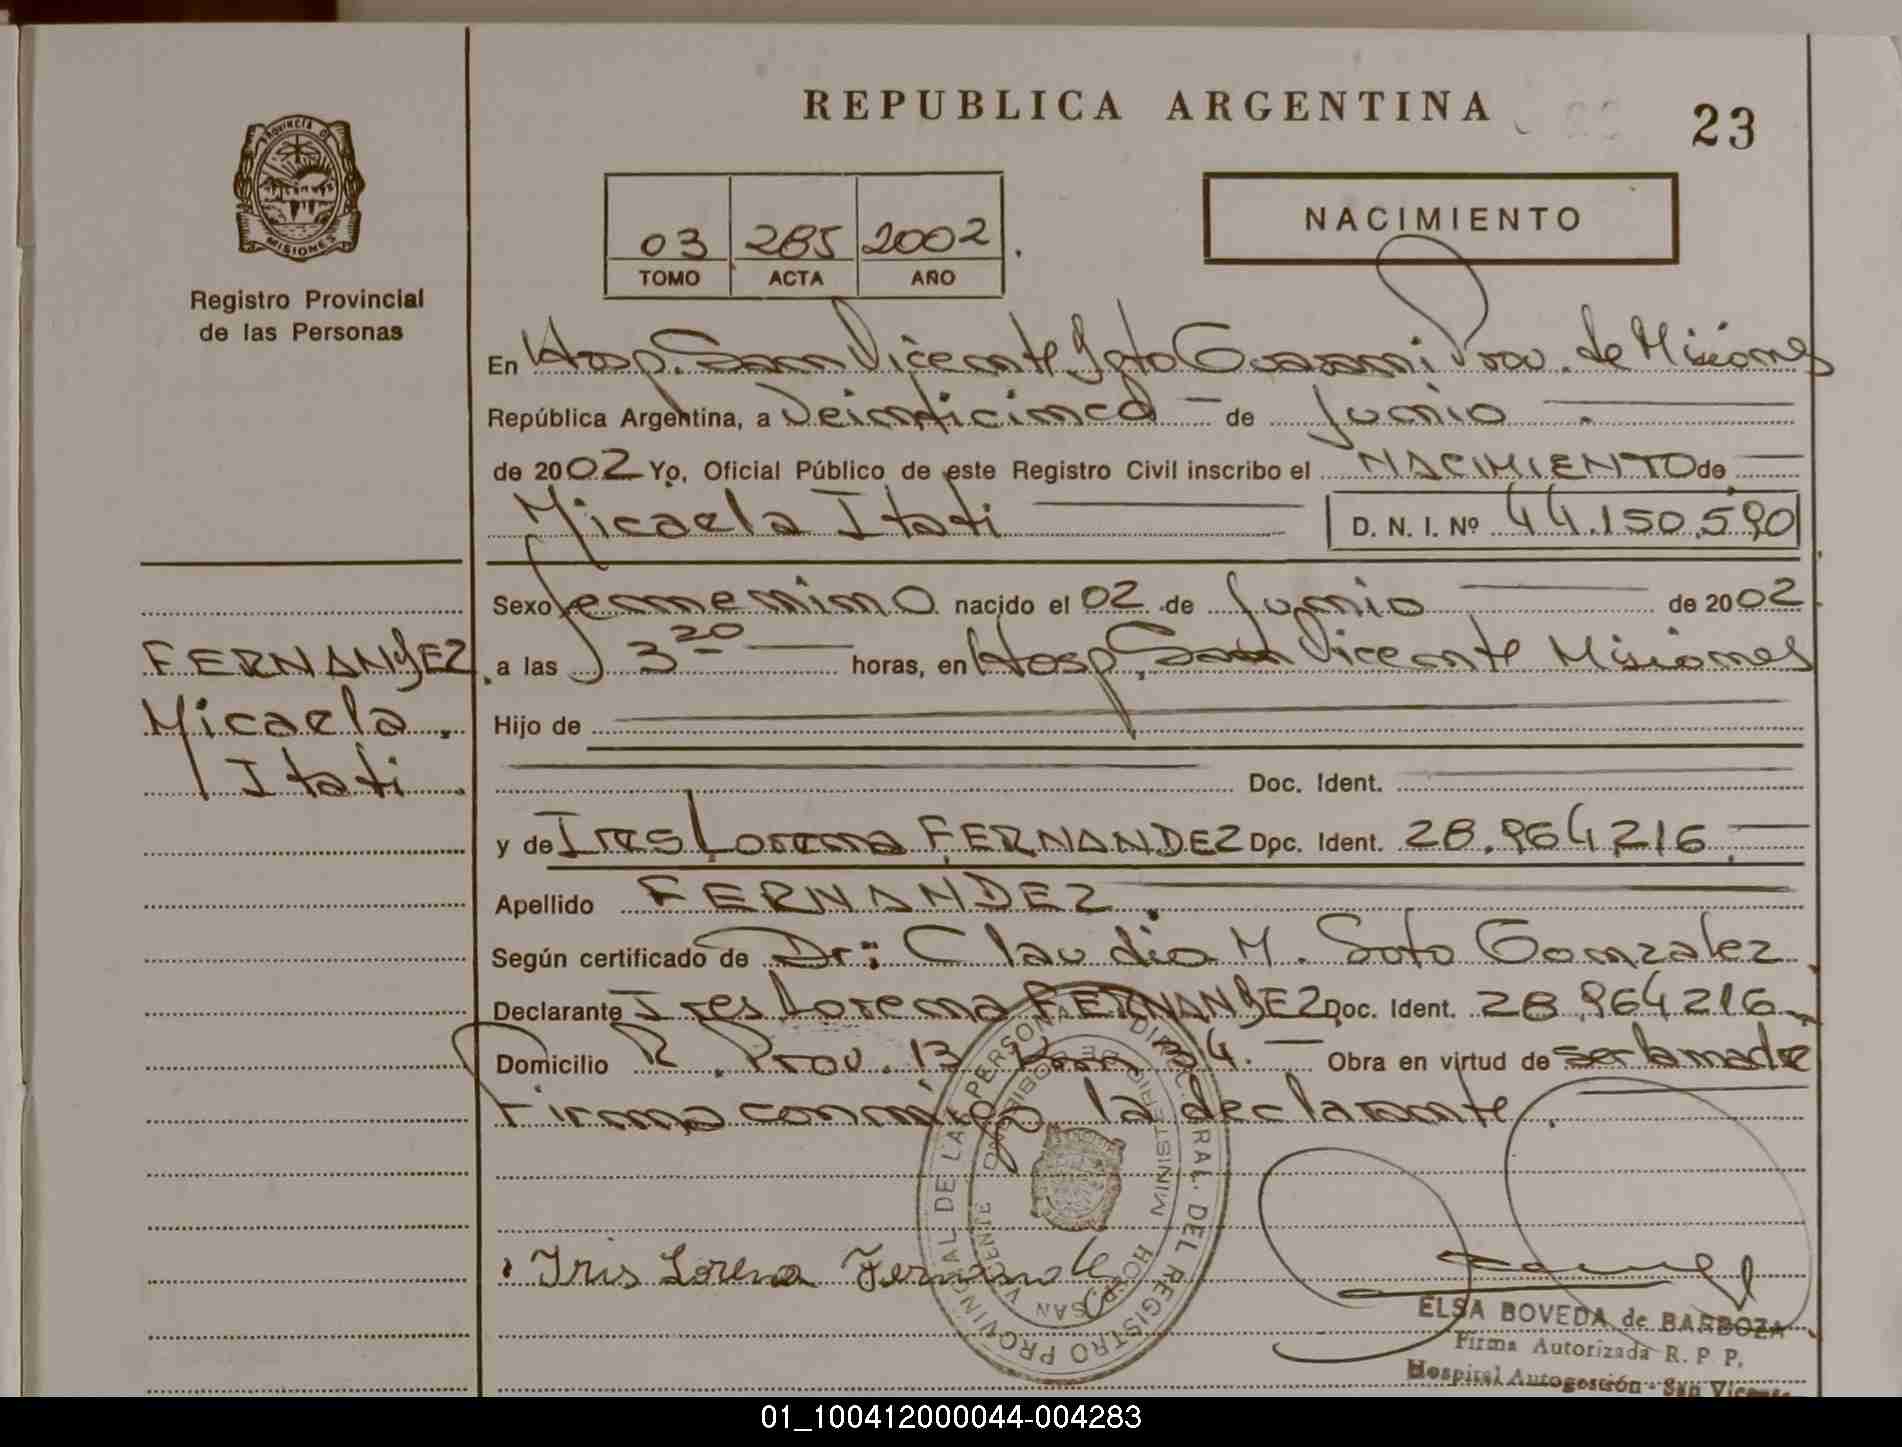 REPUBLICA ARGENTINA
23
PROVINCIA D
MISIONES
Registro Provincial
de las Personas
03 285 2002
TOMO ACTA AÑO
NACIMIENTO
En Hosp. San Vicente Dpto Guarani Prov. de Misiones
República Argentina, a Veinticinco de Junio
de 2002 Yo, Oficial Público de este Registro Civil inscribo el NACIMIENTO de
Micaela Itati D. N. I. Nº 44.150.590
Sexo femenino nacido el 02 de Junio de 2002
FERNANDEZ
Micaela
Itati
a las 3 20 horas, en Hosp. San Vicente Misiones
Hijo de
Doc. Ident.
y de Ires Lorena FERNANDEZ Doc. Ident. 28.964216
Apellido FERNANDEZ
Según certificado de Dr: Claudio M. Soto Gonzalez
Declarante Ires Lorena FERNANDEZ Doc. Ident. 28.964216
Domicilio R. Prov. 13 Km 34. Obra en virtud de ser la madre
Firma conmigo la declarante.
DIREC. GRAL. DEL REGISTRO PROVINCIAL DE LAS PERSONAS
MINISTERIO DE GOBIERNO
HOSP. SAN VICENTE
Iris Lorena Fernandez
ELSA BOVEDA de BARBOZA
Firma Autorizada R. P P.
Hospital Autogestión - San Vicente
01_100412000044-004283